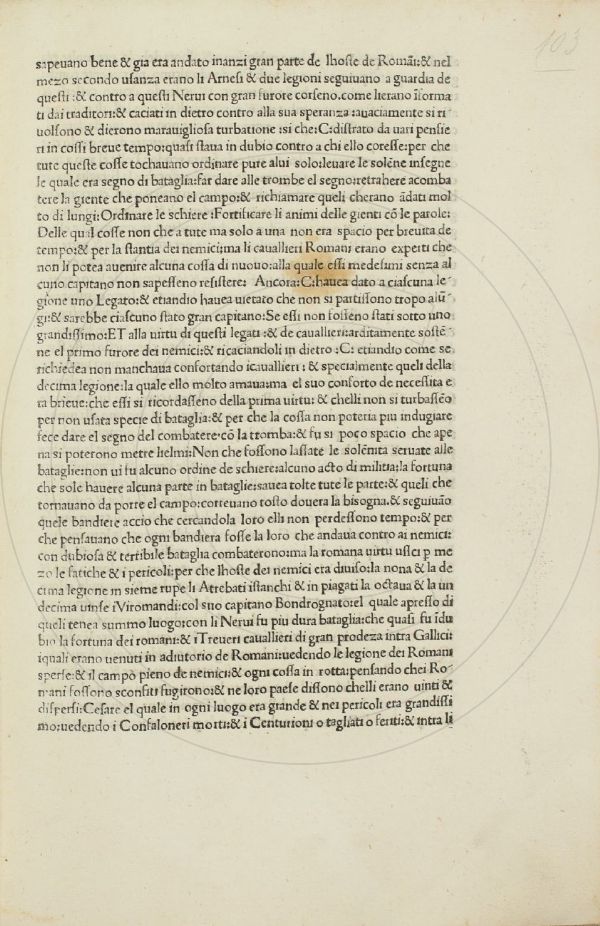 103
sapeuano bene & gia era andato inanzi gran parte de lhoste de Romãi:& nel
mezo secondo usanza erano li Arnesi & due legioni seguiuano a guardia de
questi :& contro a questi Nerui con gran furore corseno.come lierano iformа
ti dai traditori:& caciati in dietro contro alla sua speranza :auaciamente si ri
uolsono & dierono marauigliosa turbatione :si che:C:distrato da uari pensie
ri in cossi breue tempo:quasi staua in dubio contro a chi ello coresse:per che
tute queste cosse tochauano ordinare pure alui solo:leuare le solẽne insegne
le quale era segno di bataglia:far dare alle trombe el segno:retrahere acomba
tere la giente che poneano el campo:& richiamare queli cherano ãdati mol
to di lungi:Ordinare le schiere :Fortificare li animi delle gienti cõ le parole:
Delle qual cosse non che a tute ma solo a una non era spacio per breuita de
tempo:& per la stantia dei nemici:ma li cauallieri Romani erano experti che
non li potea auenire alcuna cossa di nuouo:alla quale essi medesimi senza al
cuno capitano non sapesseno resistere: Ancora:C:hauea dato a ciascuna le-
gione uno Legato:& etiandio hauea uietato che non si partissono tropo alũ-
gi:& sarebbe ciascuno stato gran capitano:Se essi non fosseno stati sotto uno
grandissimo:ET alla uirtu di questi legati :& de cauallieri:arditamente sostẽ-
ne el primo furore dei nemici:& ricaciandoli in dietro :C: etiandio come se
richiedea non manchaua confortando icauallieri : & specialmente queli della
decima legione:la quale ello molto amaua:ma el suo conforto de necessita e
ra brieue:che essi si ricordasseno della prima uirtu:& chelli non si turbassẽo
per non usata specie di bataglia:& per che la cossa non poteria piu indugiare
fece dare el segno del combatere:cõ la tromba:& fu si poco spacio che ape
na si poterono metre lielmi:Non che fossono lassate le solẽnita seruate alle
bataglie:non ui fu alcuno ordine de schiere:alcuno acto di militia:la fortuna
che sole hauere alcuna parte in bataglie:sauea tolte tute le parte:& queli che
tornauano da porre el campo:correuano tosto douera la bisogna.& seguiuão
quele bandiere accio che cercandola loro elli non perdessono tempo:& per
che pensauano che ogni bandiera fosse la loro che andaua contro ai nemici:
con dubiosa & terribile bataglia combaterono:ma la romana uirtu usci p me
zo le fatiche & i pericoli:per che lhoste dei nemici era diuiso:la nona & la de
cima legione in sieme rupe li Atrebati istanchi & in piagati la octaua & la un
decima uinse iViromandi:col suo capitano Bondrognato:el quale apresso di
queli tenea summo luogo:con li Nerui fu piu dura bataglia:che quasi fu idu
bio la fortuna dei romani:& iTreueri cauallieri di gran prodeza intra Gallici:
iquali erano uenuti in adiutorio de Romani:uedendo le legione dei Romani
sperse:& il campo pieno de nemici:& ogni cossa in rotta:pensando chei Ro-
mani fossono sconfiti fugirono:& ne loro paese dissono chelli erano uinti &
dispersi:Cesare el quale in ogni luogo era grande & nei pericoli era grandissi
mo:uedendo i Confaloneri morti:& i Centurioni o tagliati o feriti:& intra li